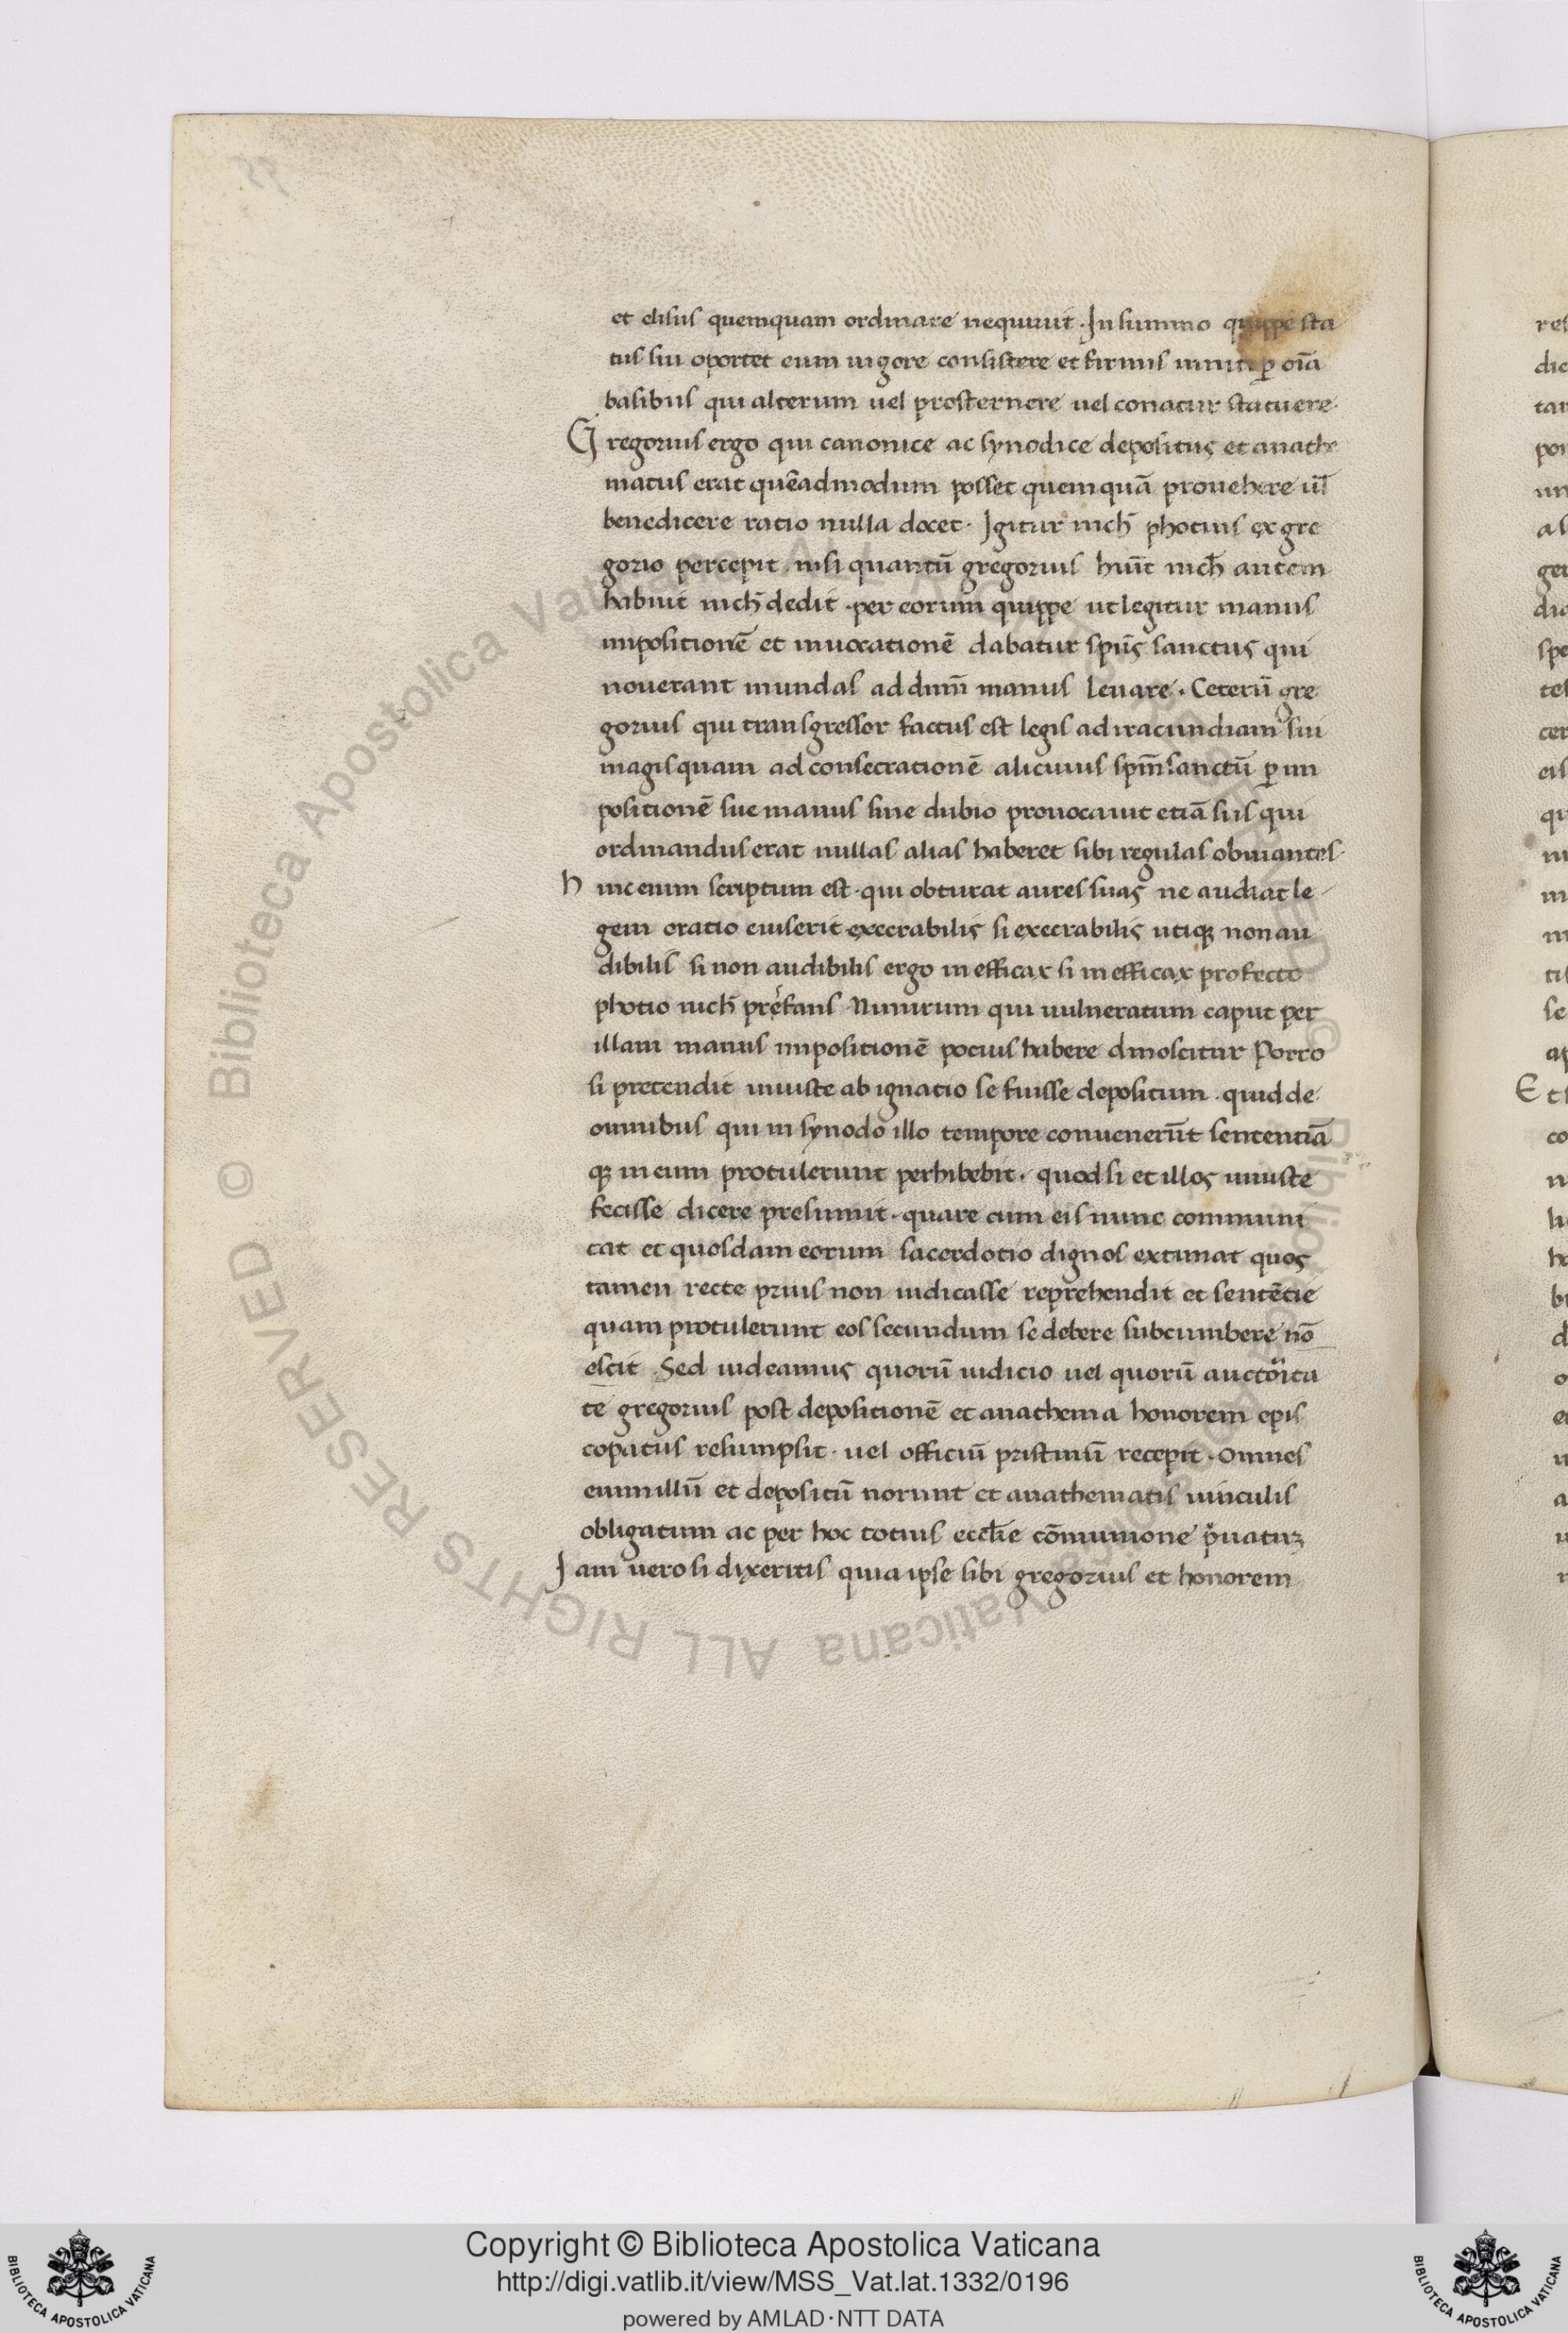 et elisus quemquam ordinare nequiuit · In summo quippe sta
tus sui oportet eum uigore consistere et firmis inniti ꝑ oīa
basibus qui alterum uel prosternere uel conatur statuere·
Gregorius ergo qui canonice ac synodice depositus et anathe
matus erat quēadmodum posset quemquā prouehere ul̄
benedicere ratio nulla docet · Igitur nich̄ photius ex gre
gorio percepit · nisi quantū gregorius huīt nich̄ autem
habuit nich̄ dedit · per eorum quippe ut legitur manus
impositionē et inuocationē dabatur spūs sanctus qui
nouerant mundas ad dnm̄ manus leuare · Ceterū gre
gorius qui transgressor factus est legis ad iracundiam sui
magis quam ad consecrationē alicuius spm̄ sanctū ꝑ im
positionē sue manus sine dubio prouocauit etiā si is qui
ordinandus erat nullas alias haberet sibi regulas obuiantes·
hinc enim scriptum est · qui obturat aures suas ne audiat le
gem oratio eius erit execrabilis si execrabilis utiqꝫ non au
dibilis si non audibilis ergo inefficax si inefficax profecto
photio nich̄ prestans Nimirum qui uulneratum caput per
illam manus impositionē pocius habere dinoscitur Porro
si pretendit iniuste ab ignatio se fuisse depositum · quid de
omnibus qui in synodo illo tempore conuenerūt sententiā
qꝫ in eum protulerunt perhibebit · quod si et illos iniuste
fecisse dicere presumit · quare cum eis nunc communi
cat et quosdam eorum sacerdotio dignos extimat quos
tamen recte prius non iudicasse reprehendit et sentētie
quam protulerunt eos secundum se debere subcumbere nō
escit · Sed uideamus quorū iudicio uel quorū auctorita
te gregorius post depositionē et anathema honorem epis
copatus resumpsit · uel officiū pristinū recepit · Omnes
enim illū et depositū norunt et anathematis uinculis
obligatum ac per hoc totius eccl̄ie cōmunione pͥuatuꝫ
Iam uero si dixeritis quia ipse sibi gregorius et honorem
Copyright © Biblioteca Apostolica Vaticana
http://digi.vatlib.it/view/MSS_Vat.lat.1332/0196
powered by AMLAD·NTT DATA